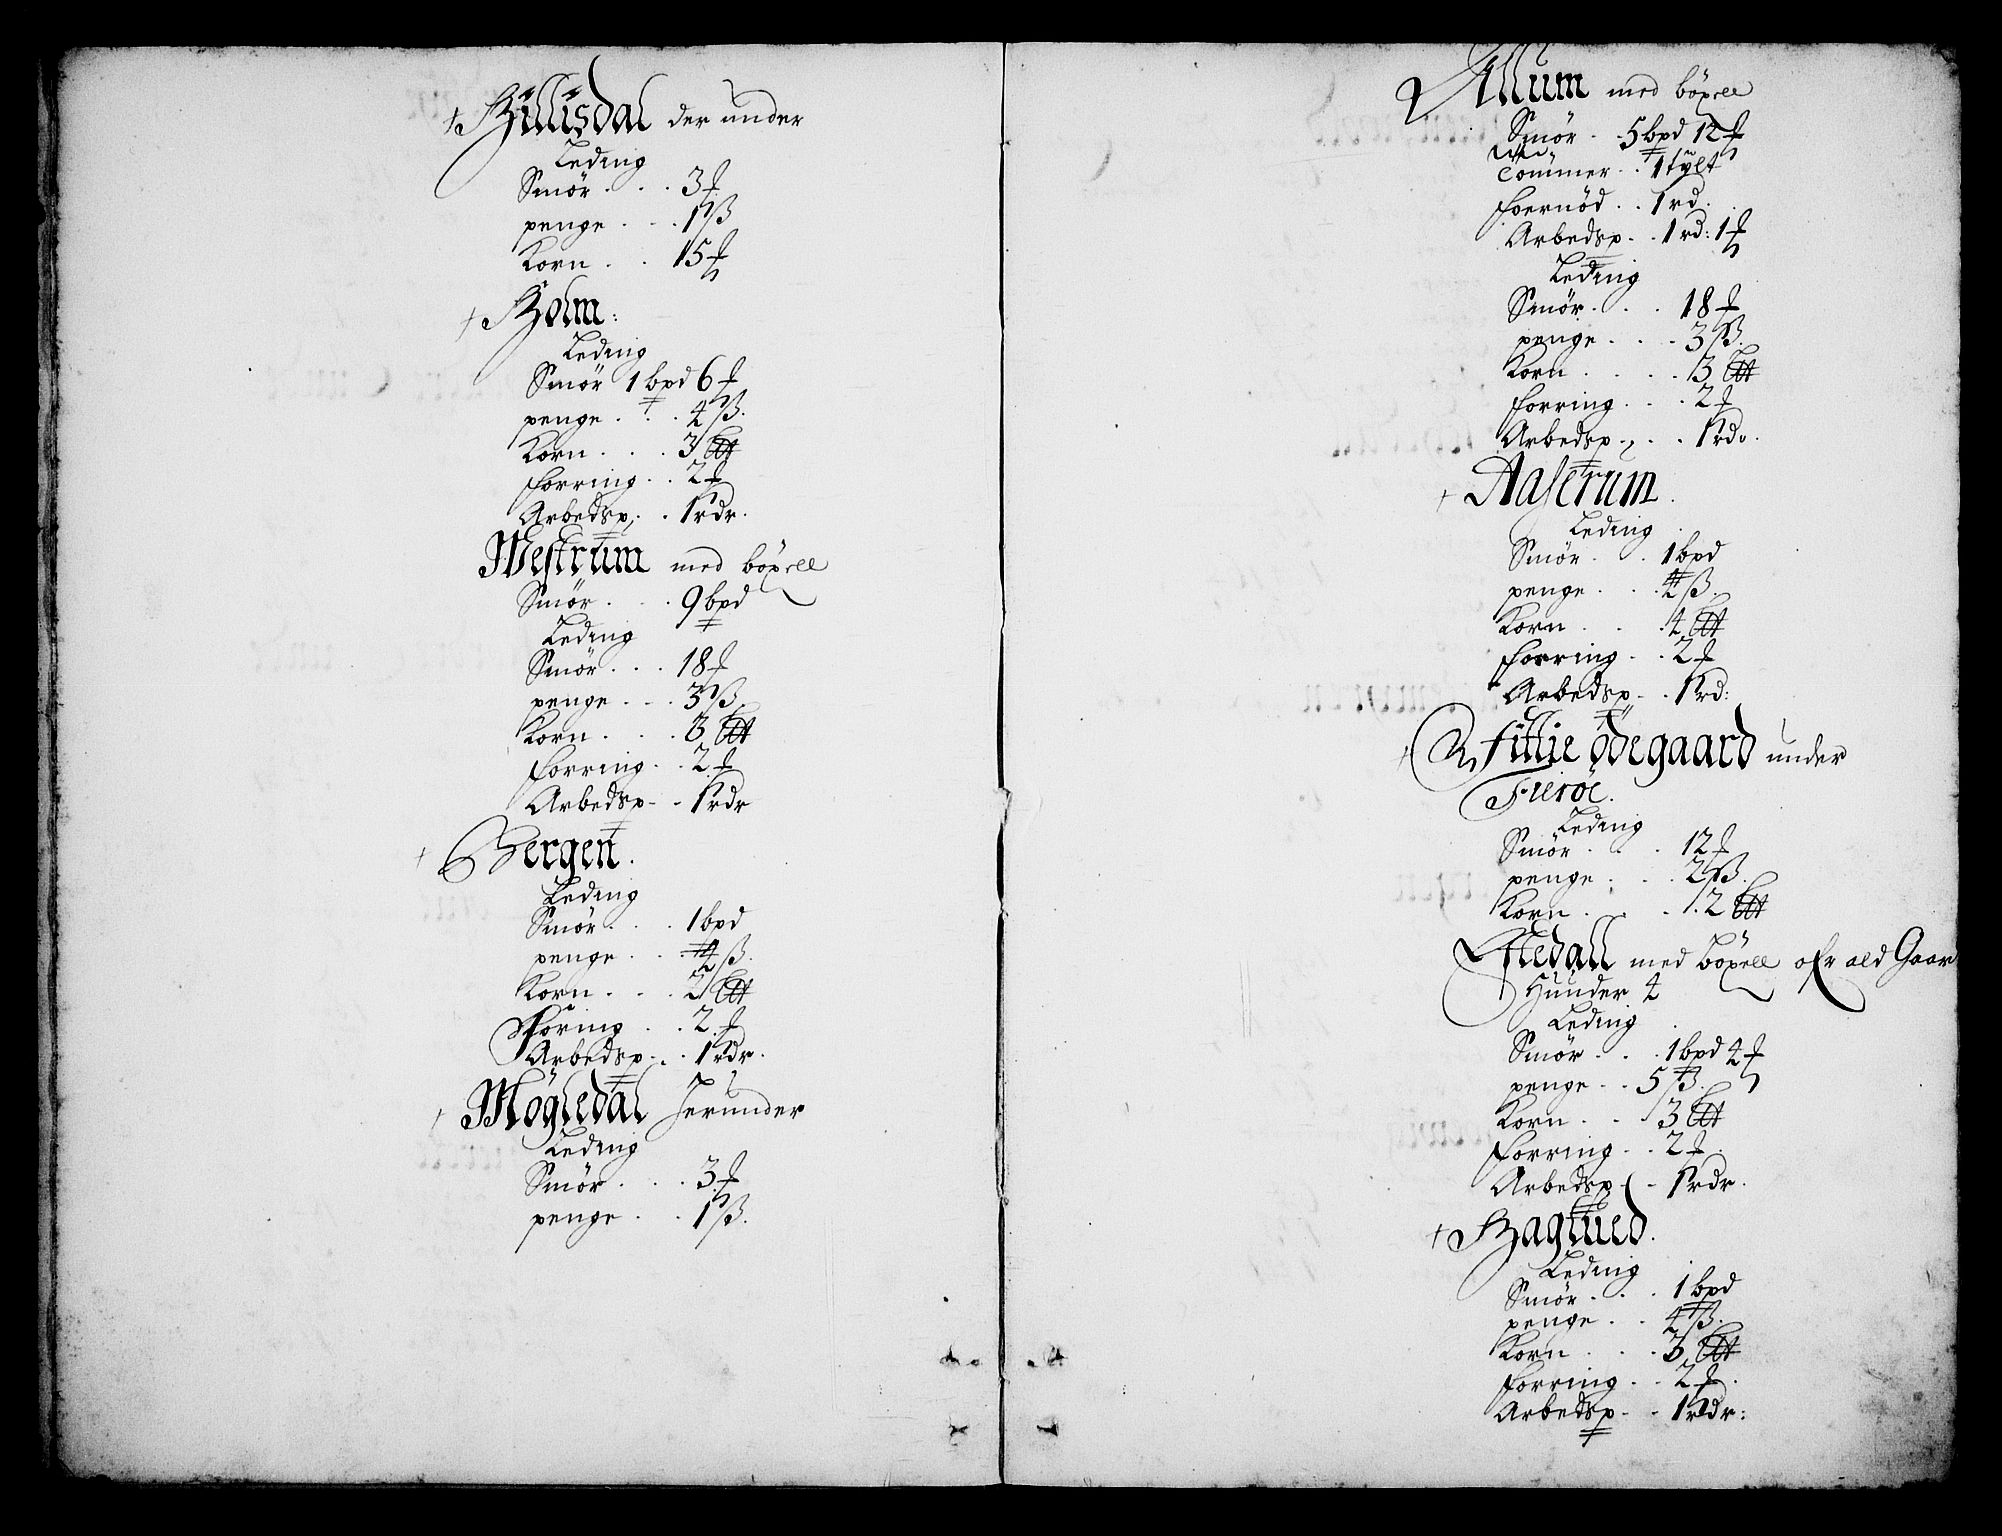 + Hillisdal der under
Leding
Smör . . . 3 ℔
penge . . . 1 ß
Korn . . 15 ℔
+ Holm:
Leding
Smör 1 bpd 6 ℔
penge . . . 4 ß.
Korn . . . 3
forring . . 2 ℔
Arbedsp, . . 1 rdr.
Westrum med böxell
Smör . . . 9 bpd
Leding
Smör . . . 18 ℔
penge . . . 3 ß
Korn . . . 3
forring . . 2 ℔
Arbedsp . . 1 rdr
+ Bergen.
Leding
Smör . . . 1 bpd
penge . . . 4 ß.
Korn . . . 2
Foring . . 2 ℔
Arbedsp . . 1 rdr.
+ Mögledal herunder
Leding
Smör . . . 3 ℔
penge . . 1 ß.
Allum med böxell
Smör . . 5 bpd 12 ℔
Tömmer . . 1 tylt
foernöd . . 1 rd.
Arbedsp . . 1 rd: 1 ℔
Leding
Smör . . . 18 ℔
penge . . . 3 ß.
Korn . . . . 3
forring . . . 2 ℔
Arbedsp, . . . 1 rd.
+ Aaserum.
Leding
Smör . . 1 bpd
penge . . . 4 ß.
Korn . . . 4
forring . . 2 ℔
Arbedsp . . 1 rd:
+ fittie ödegaard under
Fieröe.
Leding
Smör . . . 12 ℔
penge . . . 2 ß.
Korn . . . 2
Nedall med böxell ofr ald Gaar
Hunder 4
Leding
Smör . . . 1 bpd 4 ℔
penge . . 5 ß.
Korn . . 3
forring . . 2 ℔
Arbedsp . . 1 rdr.
+ Hagtued.
Leding
Smör . . . 1 bpd
penge . . 4 ß.
Korn . . . 3
forring . . 2 ℔.
Arbedsp . . 1 rdr: